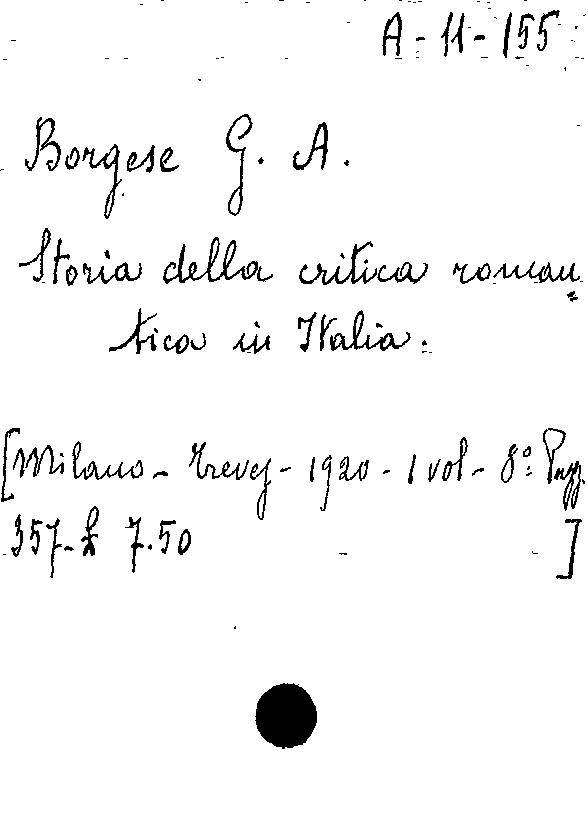 A - 11 - 155
Borgese G. A.
Storia della critica roman=
tica in Italia.
[Milano - Treves - 1920 - 1 vol - 8° Pagg.
357 - £ 7.50 ]